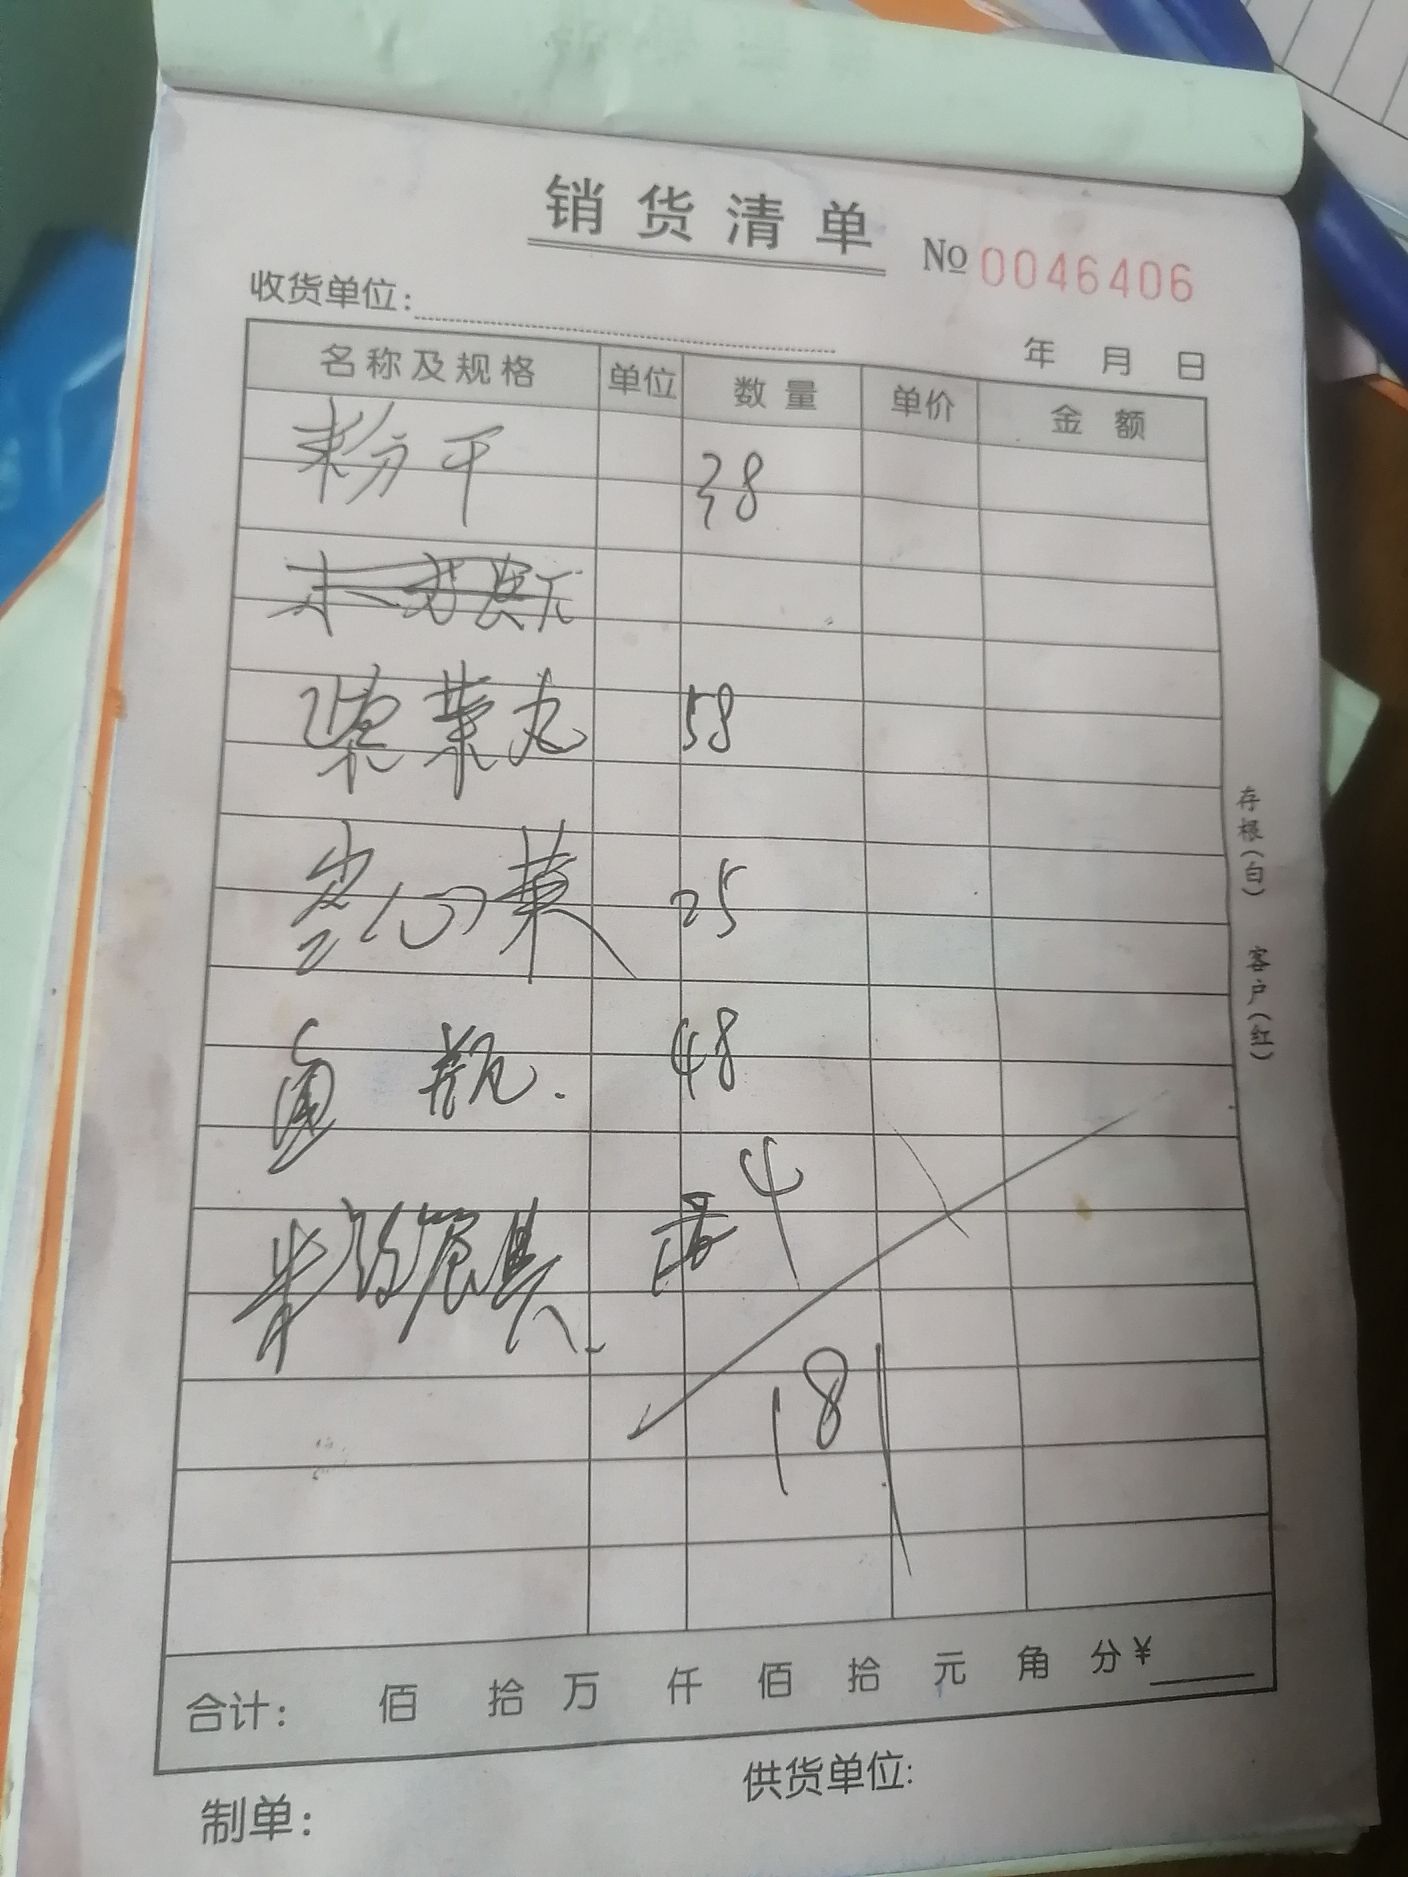 销货清单 No 0046406
收货单位:
年 月 日
名称及规格 单位 数量 单价 金额
粉干 38
紫菜丸 58
空心菜 25
48
4
181
合计: 佰 拾 万 仟 佰 拾 元 角 分 ¥
制单: 供货单位:
存根(白) 客户(红)